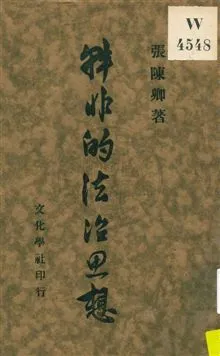 W
4548
張陳卿著
韓非的法治思想
文化學社印行